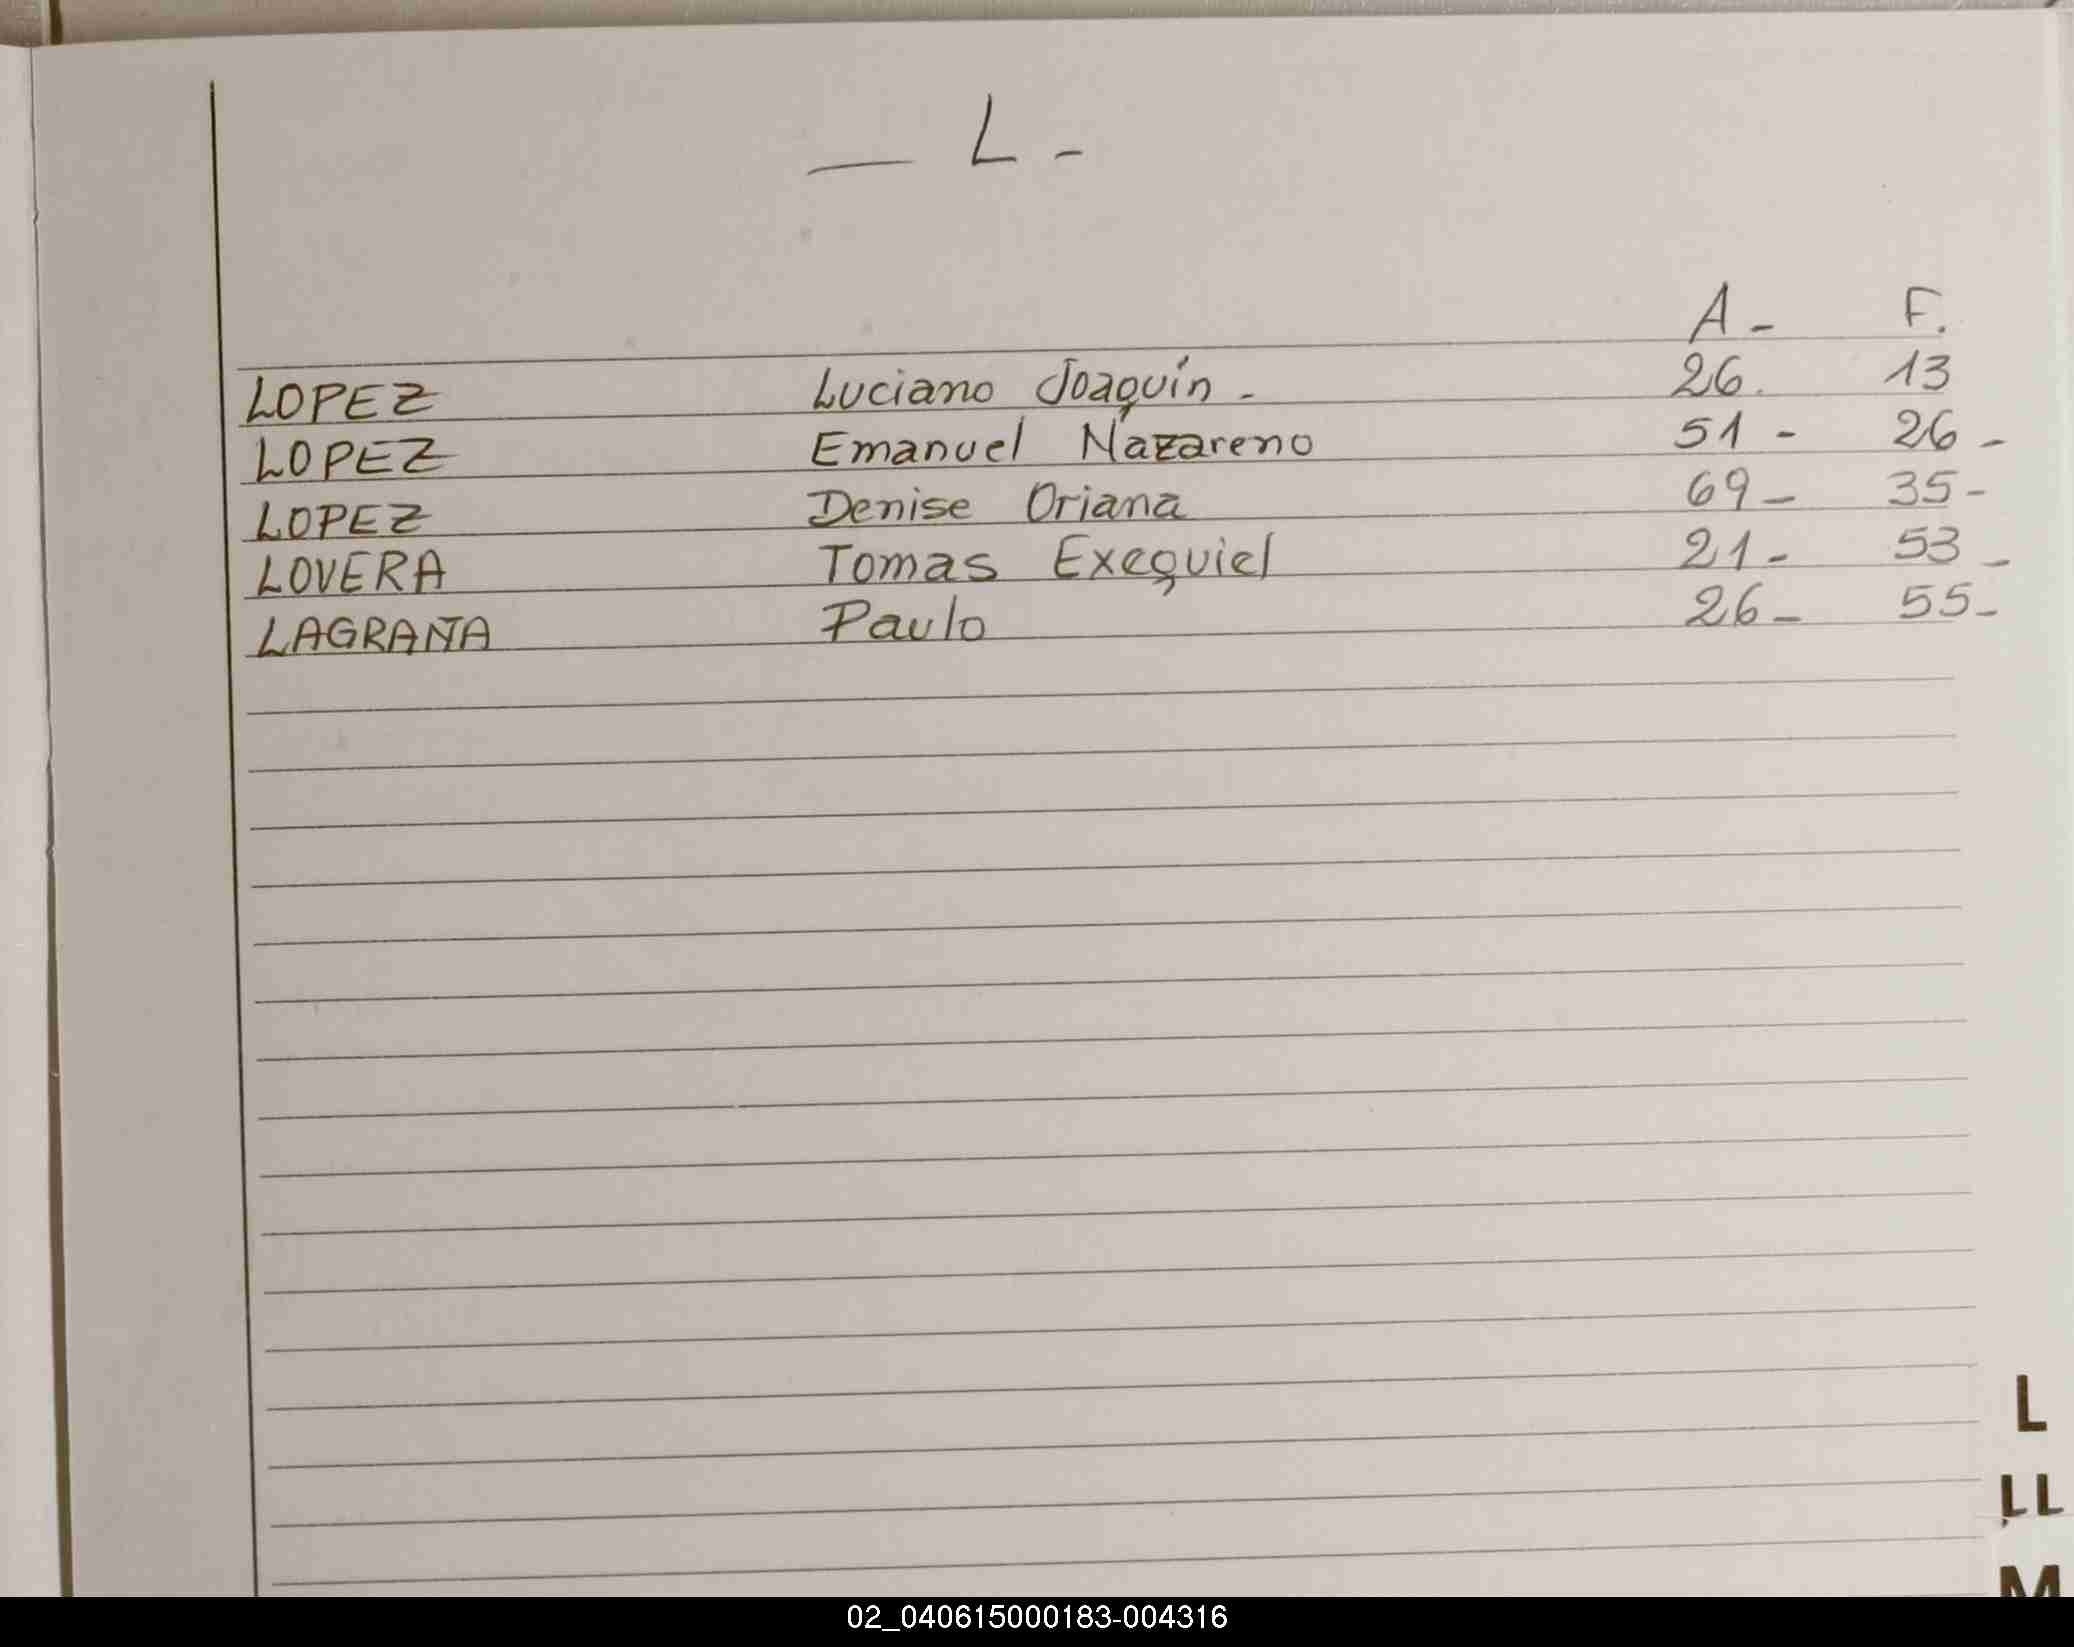 — L -
A - F.
LOPEZ Luciano Joaquín - 26. 13
LOPEZ Emanuel Nazareno 51 - 26 -
LOPEZ Denise Oriana 69 - 35 -
LOVERA Tomas Exequiel 21 - 53 -
LAGRAÑA Paulo 26 - 55 -
L
LL
M
02_040615000183-004316